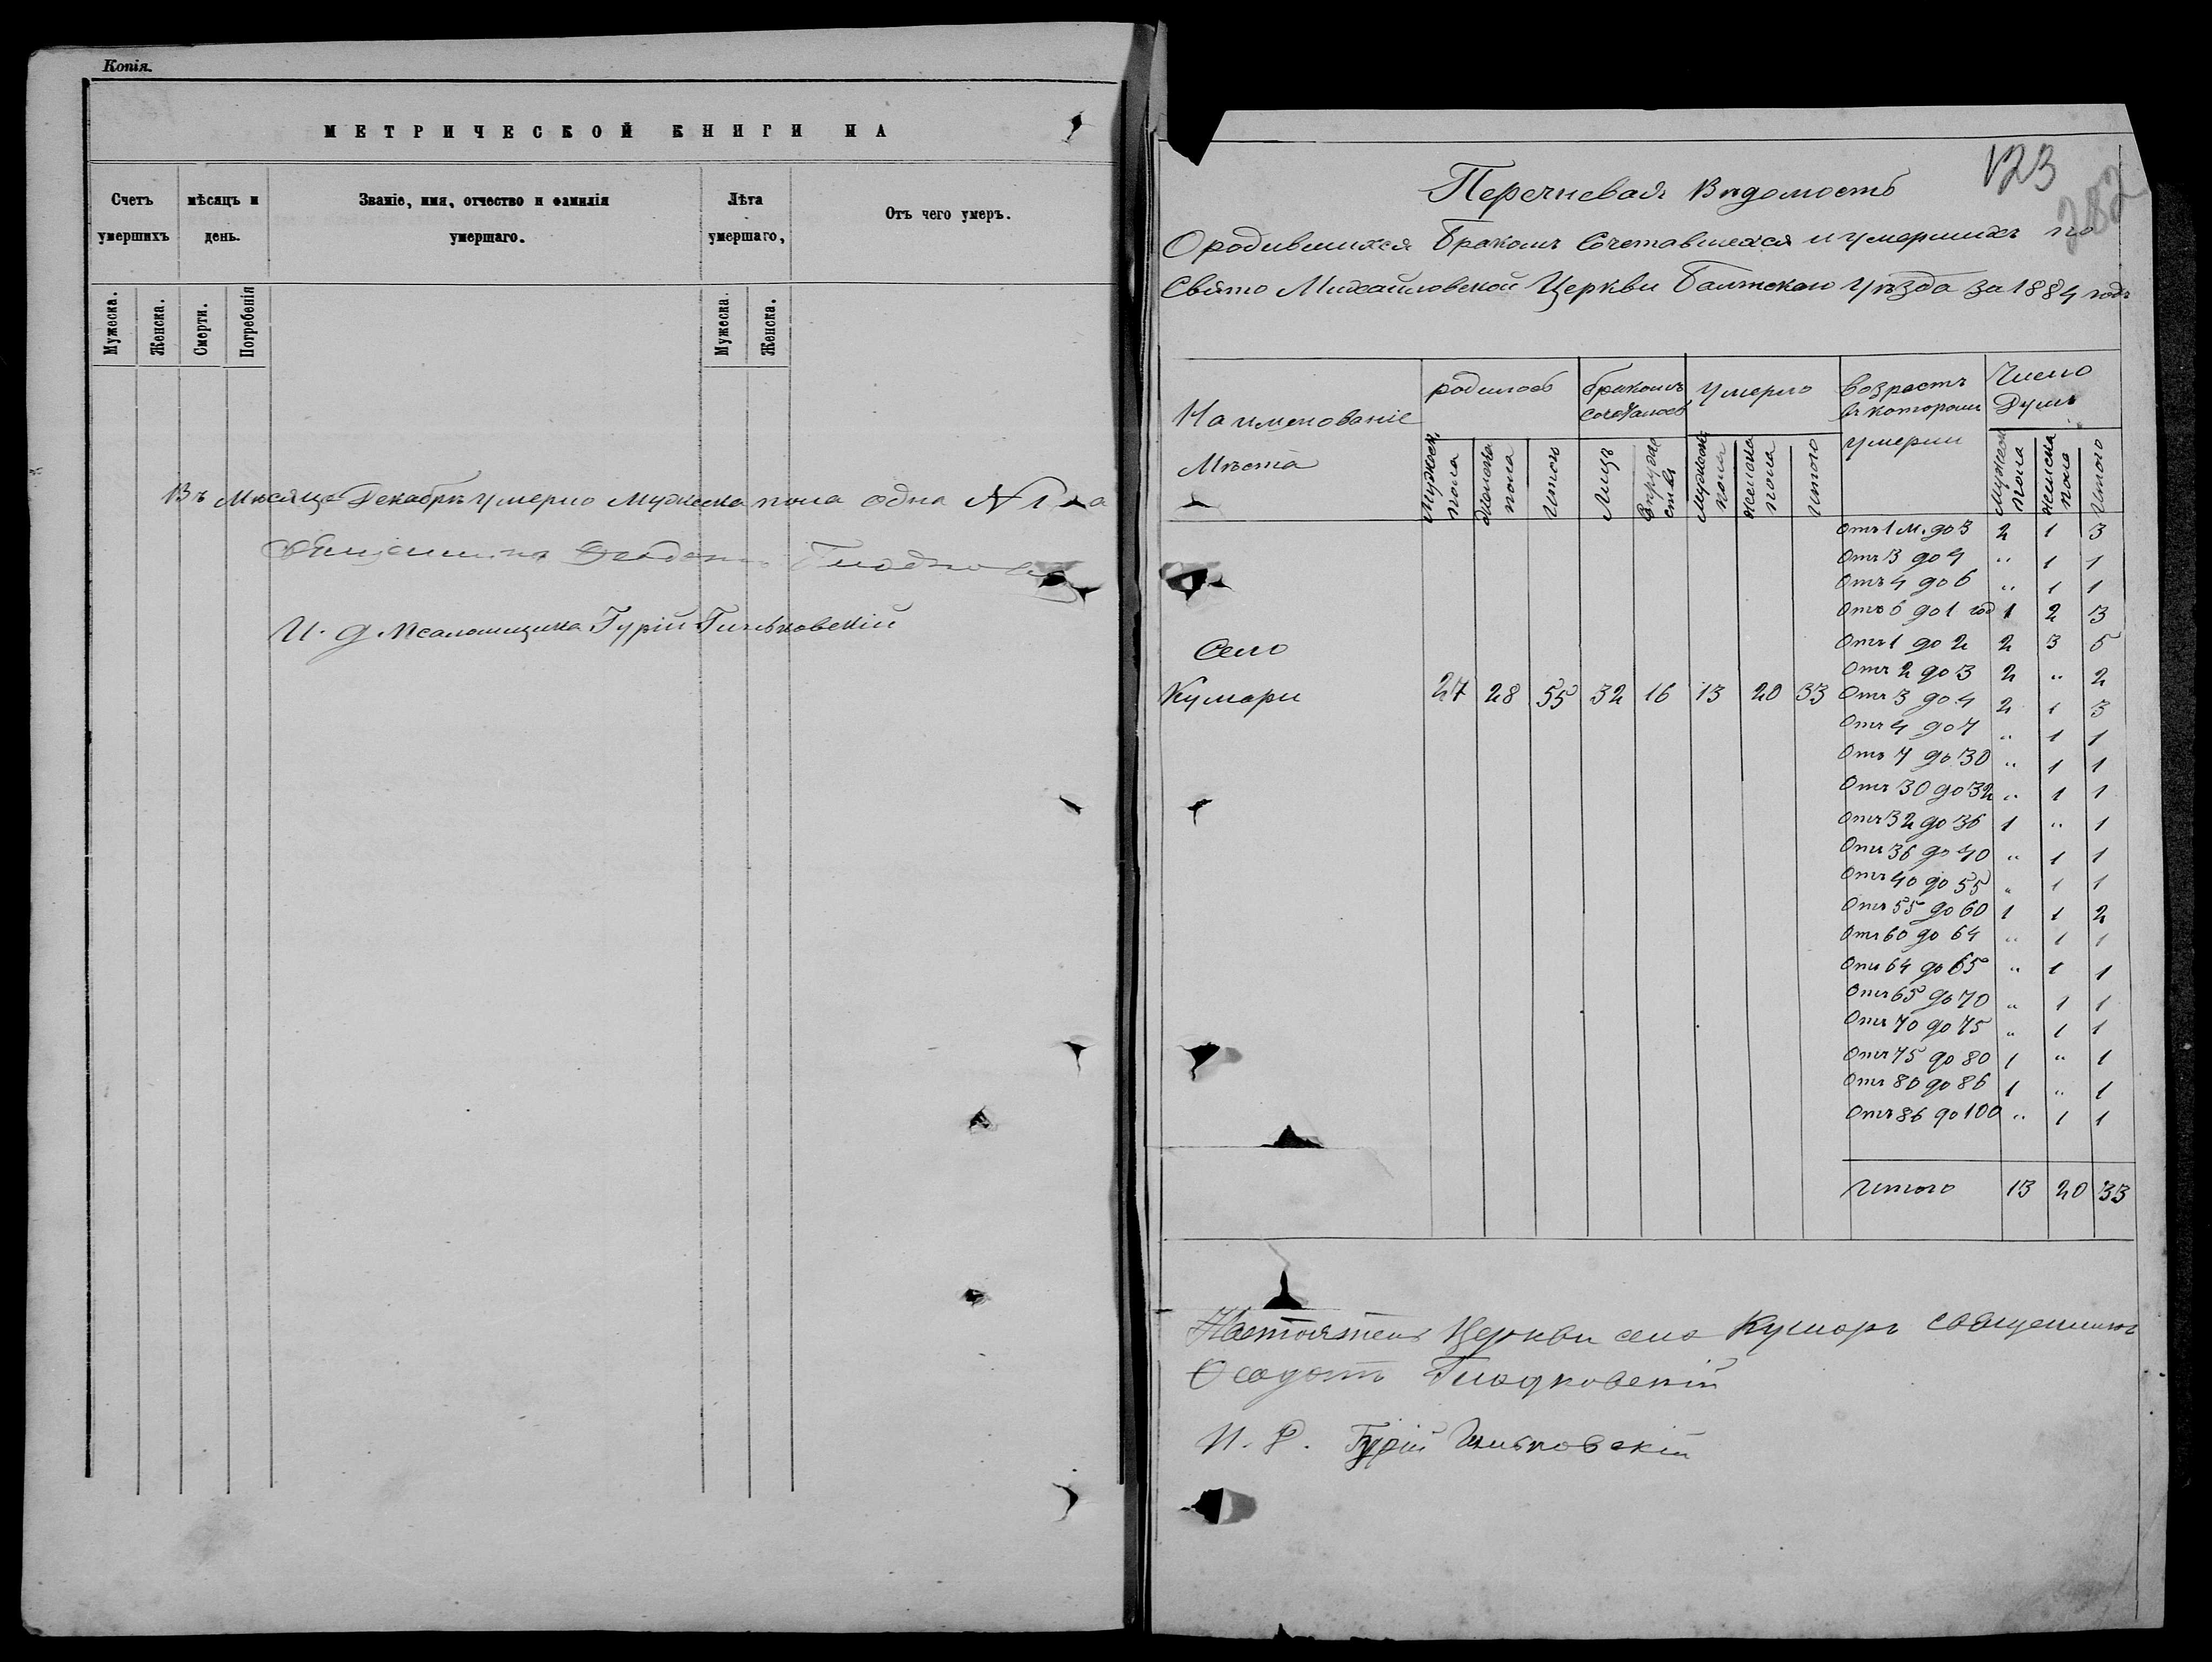 Копія.
МЕТРИЧЕСКОЙ КНИГИ НА
Счетъ умершихъ
мѣсяцъ и день.
Званіе, имя, отчество и фамилія умершаго.
Лѣта умершаго,
Отъ чего умеръ.
Мужеска. Женска. Смерти. Погребенія Мужеска. Женска.
Въ Мѣсяцѣ Декабрѣ умерло Мужеска пола одна №
Священникъ Ѳеодотъ
И. д. Псаломщика Гурій
123
282
Перечневая Вѣдомость
О родившихся Бракомъ Сочетавшихся и умершихъ по
Свято Михайловской Церкви Балтскаго Уѣзда за 1884 годъ
Наименованіе Мѣста
родилось
бракомъ сочеталось
умерло
возрастъ въ которомъ умерли
Число Душъ
Мужеск. пола Женска пола Итого Лицъ Супруже ства Мужеск. пола Женска пола Итого Мужеск пола Женска пола Итого
Отъ 1 м. до 3 2 1 3
Отъ 3 до 4 " 1 1
Отъ 4 до 6 " 1 1
Отъ 6 до 1 год 1 2 3
Село
Отъ 1 до 2 2 3 5
Отъ 2 до 3 2 " 2
Кумари 27 28 55 32 16 13 20 33 Отъ 3 до 4 2 1 3
Отъ 4 до 7 " 1 1
Отъ 7 до 30 " 1 1
Отъ 30 до 32 " 1 1
Отъ 32 до 36 1 " 1
Отъ 36 до 40 " 1 1
Отъ 40 до 55 " 1 1
Отъ 55 до 60 1 1 2
Отъ 60 до 64 " 1 1
Отъ 64 до 65 " 1 1
Отъ 65 до 70 " 1 1
Отъ 70 до 75 " 1 1
Отъ 75 до 80 1 " 1
Отъ 80 до 86 1 " 1
Отъ 86 до 100 " 1 1
Итого 13 20 33
Настоятель Церкви села Кумаръ священникъ
Ѳеодотъ Гладковскій
И. Д. Гурій